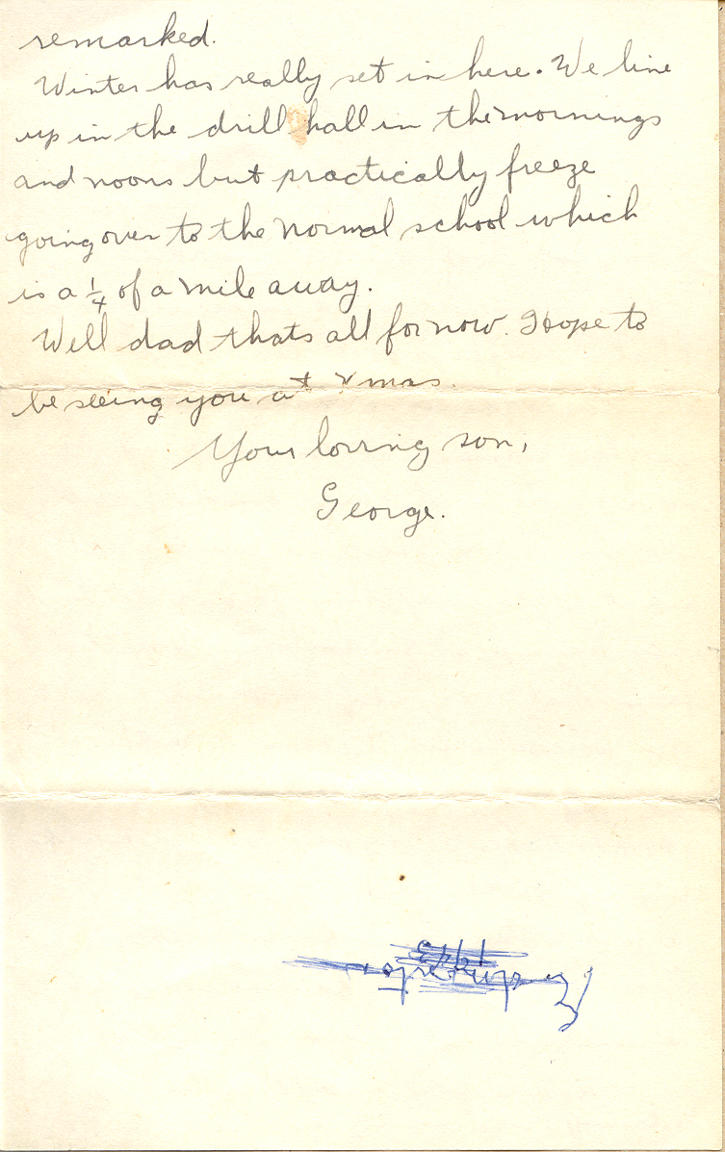 remarked.
Winter has really set in here. We line
up in the drill hall in the mornings
and noons but practically freeze
going over to the normal school which
is a ¼ of a mile away.
Well dad thats all for now. Hope to
be seeing you at Xmas.
Your loving son,
George.